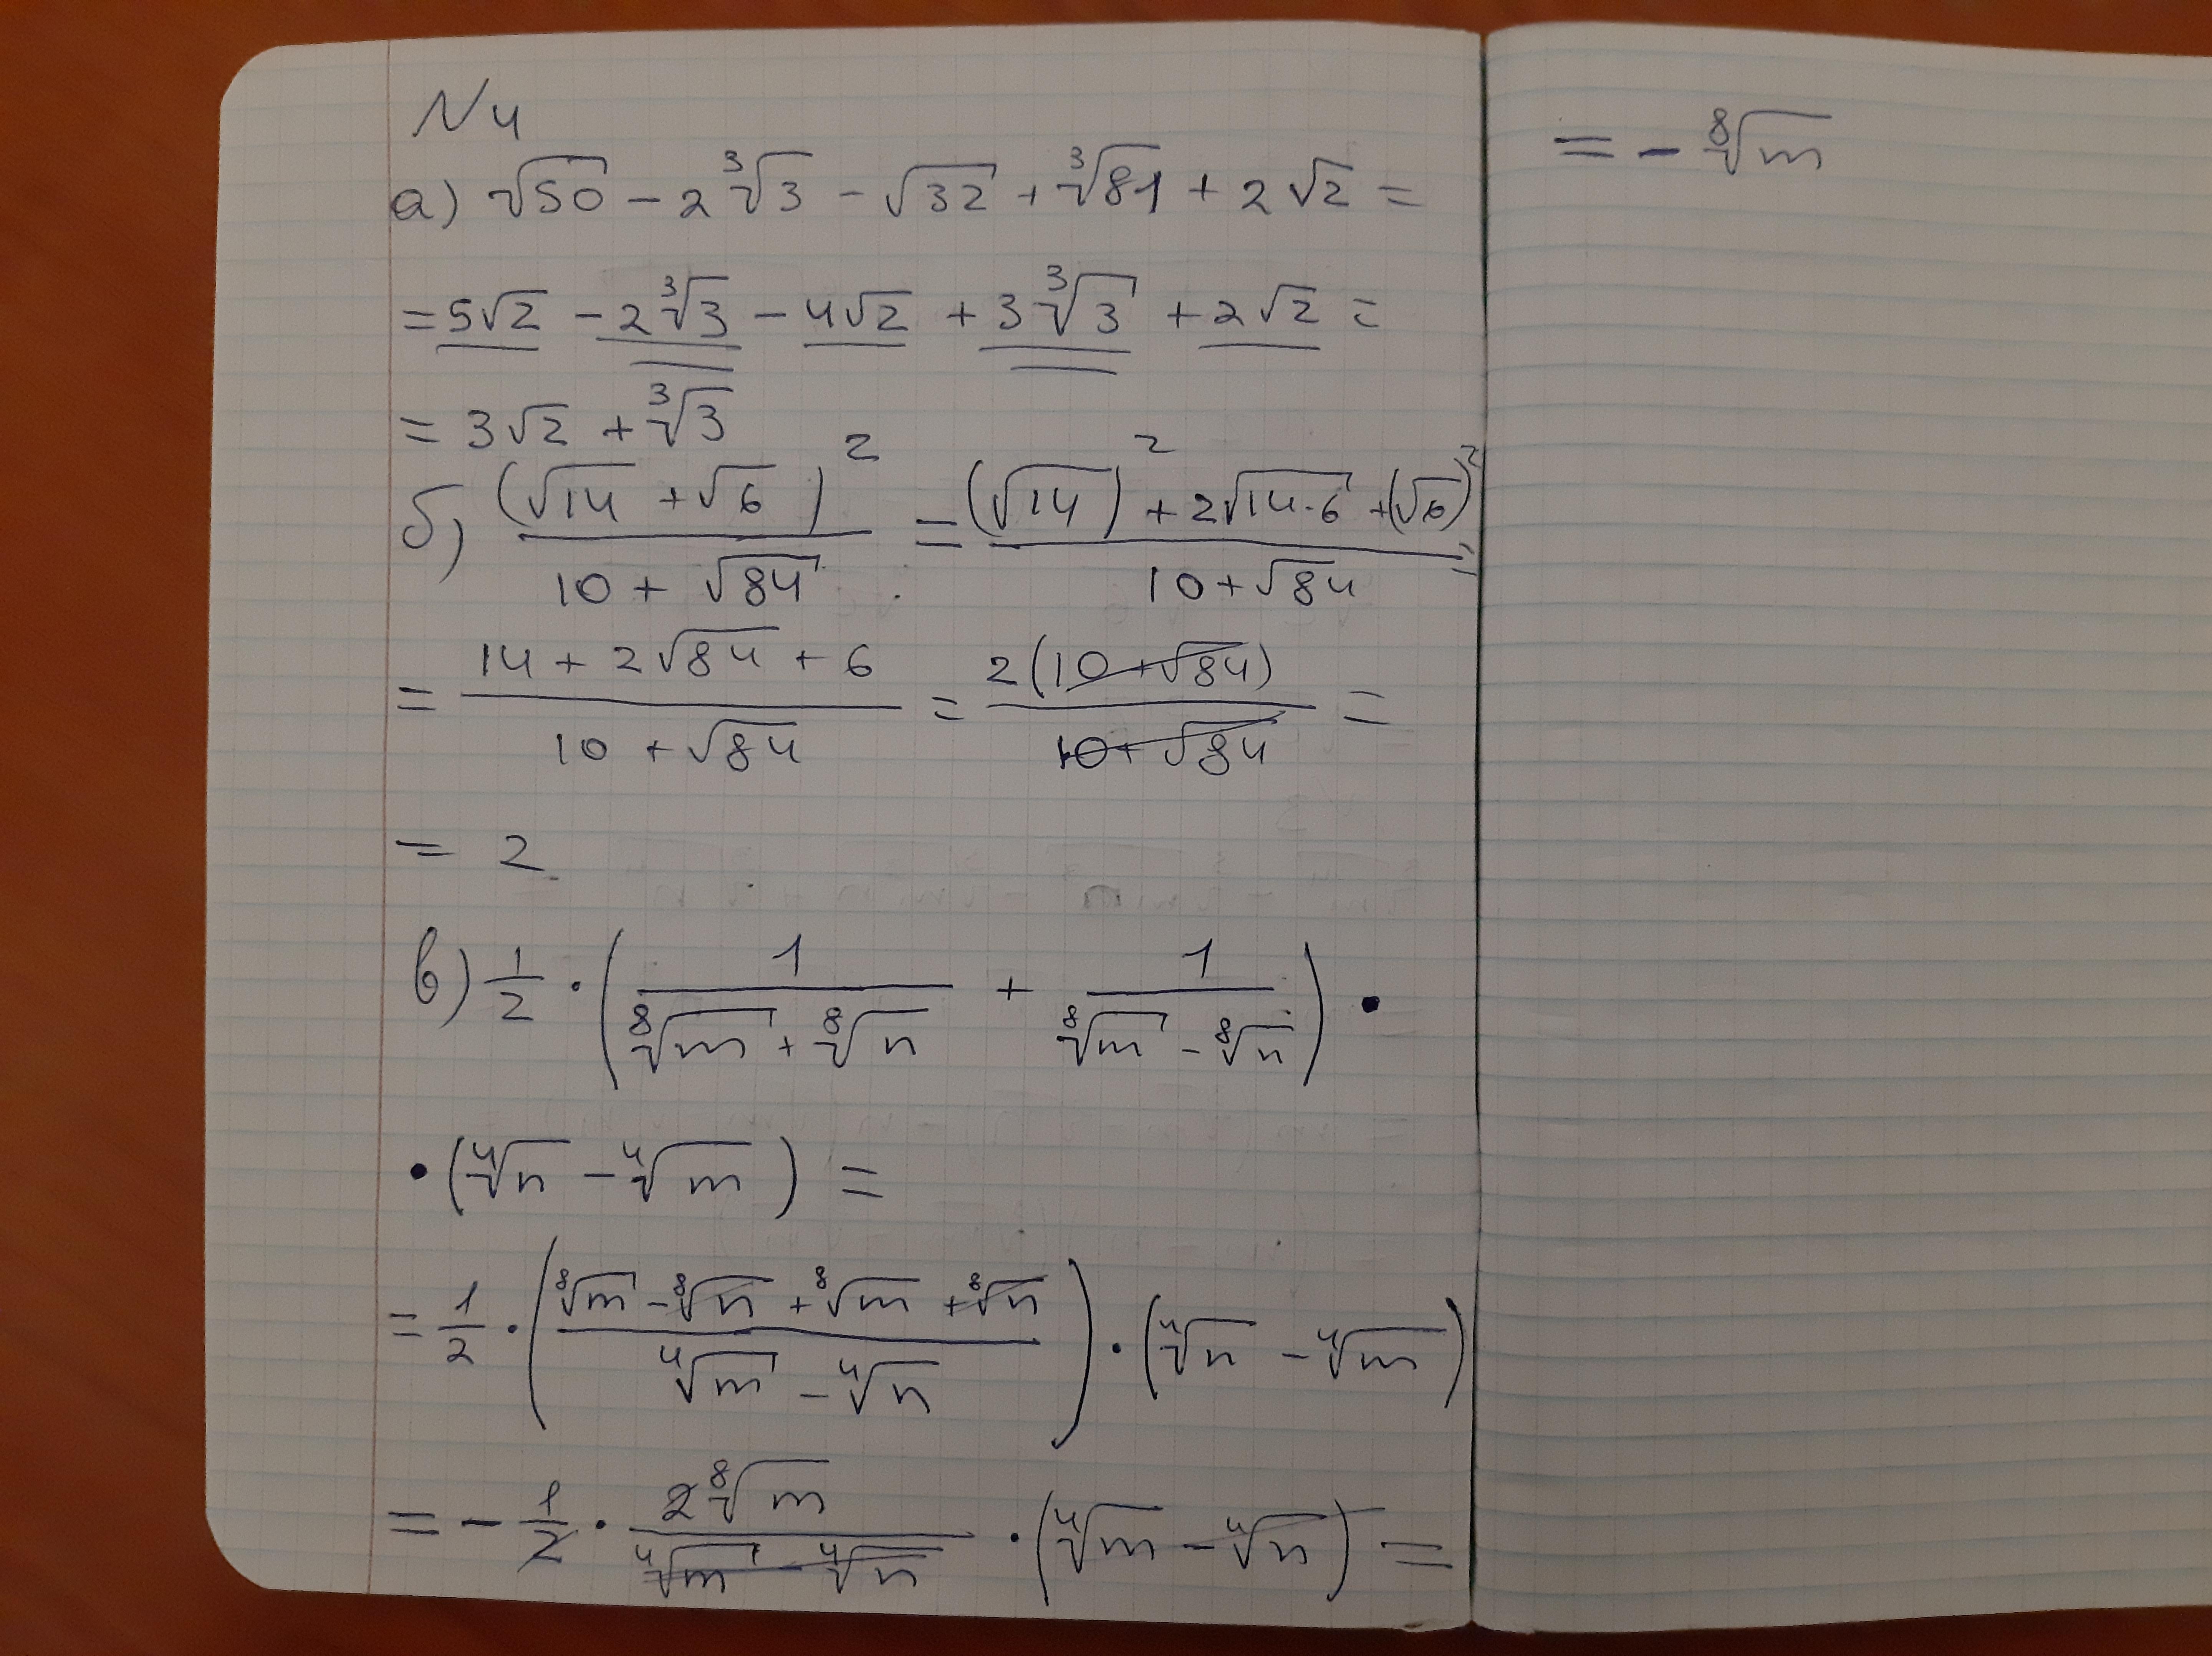 N4
а) √50 − 2∛3 − √32 + ∛81 + 2√2 =
= 5√2 − 2∛3 − 4√2 + 3∛3 + 2√2 =
= 3√2 + ∛3
б) (√14 + √6)² / (10 + √84) = ((√14)² + 2√14·6 + (√6)²) / (10 + √84) =
= (14 + 2√84 + 6) / (10 + √84) = 2(10 + √84) / (10 + √84) =
= 2
в) 1/2 · (1 / (⁸√m + ⁸√n) + 1 / (⁸√m − ⁸√n)) ·
· (⁴√n − ⁴√m) =
= 1/2 · ((⁸√m − ⁸√n + ⁸√m + ⁸√n) / (⁴√m − ⁴√n)) · (⁴√n − ⁴√m)
= − 1/2 · 2⁸√m / (⁴√m − ⁴√n) · (⁴√m − ⁴√n) =
= − ⁸√m